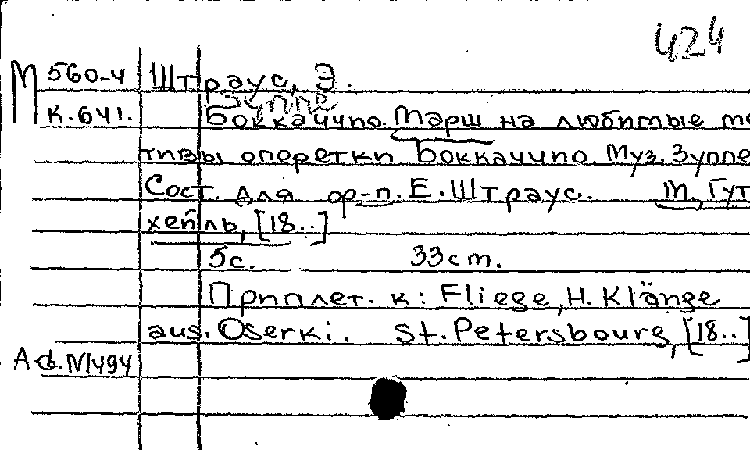 424
М 560-4 Штраус, Э.
Зуппе
К.641. Боккаччио. Марш на любимые мо
тивы оперетки Боккаччио Муз. Зуппе
Сост. для ор-п. Е. Штраус. М, Гут
хейль, [18..]
5с. 33см.
Приплет. к: Fliege, H. Klänge
aus. Oserki. St. Petersbourg, [18..]
Аф. N1494